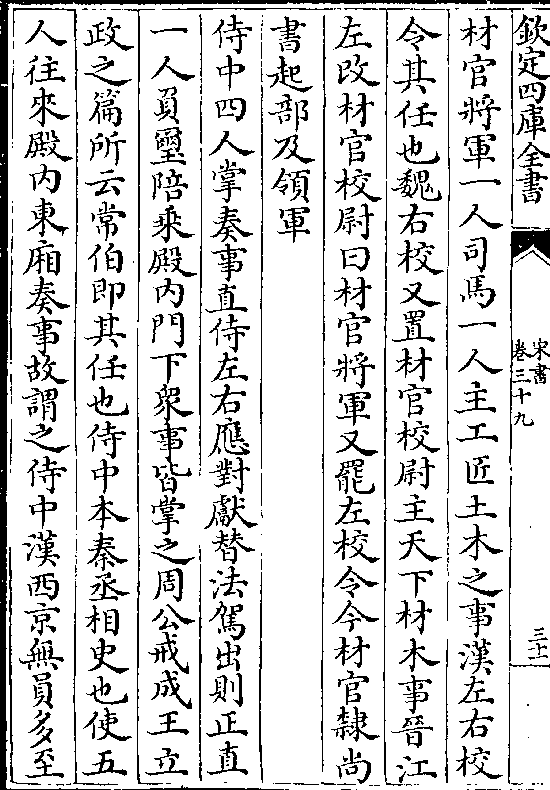 欽定四庫全書
宋書
卷三十九
三十一
材官將軍一人司馬一人主工匠土木之事漢左右校
令其任也魏右校又置材官校尉主天下材木事晉江
左改材官校尉曰材官將軍又罷左校令今材官隸尚
書起部及領軍
侍中四人掌奏事直侍左右應對獻替法駕出則正直
一人負璽陪乘殿內門下衆事皆掌之周公戒成王立
政之篇所云常伯即其任也侍中本秦丞相史也使五
人往來殿內東廂奏事故謂之侍中漢西京無員多至